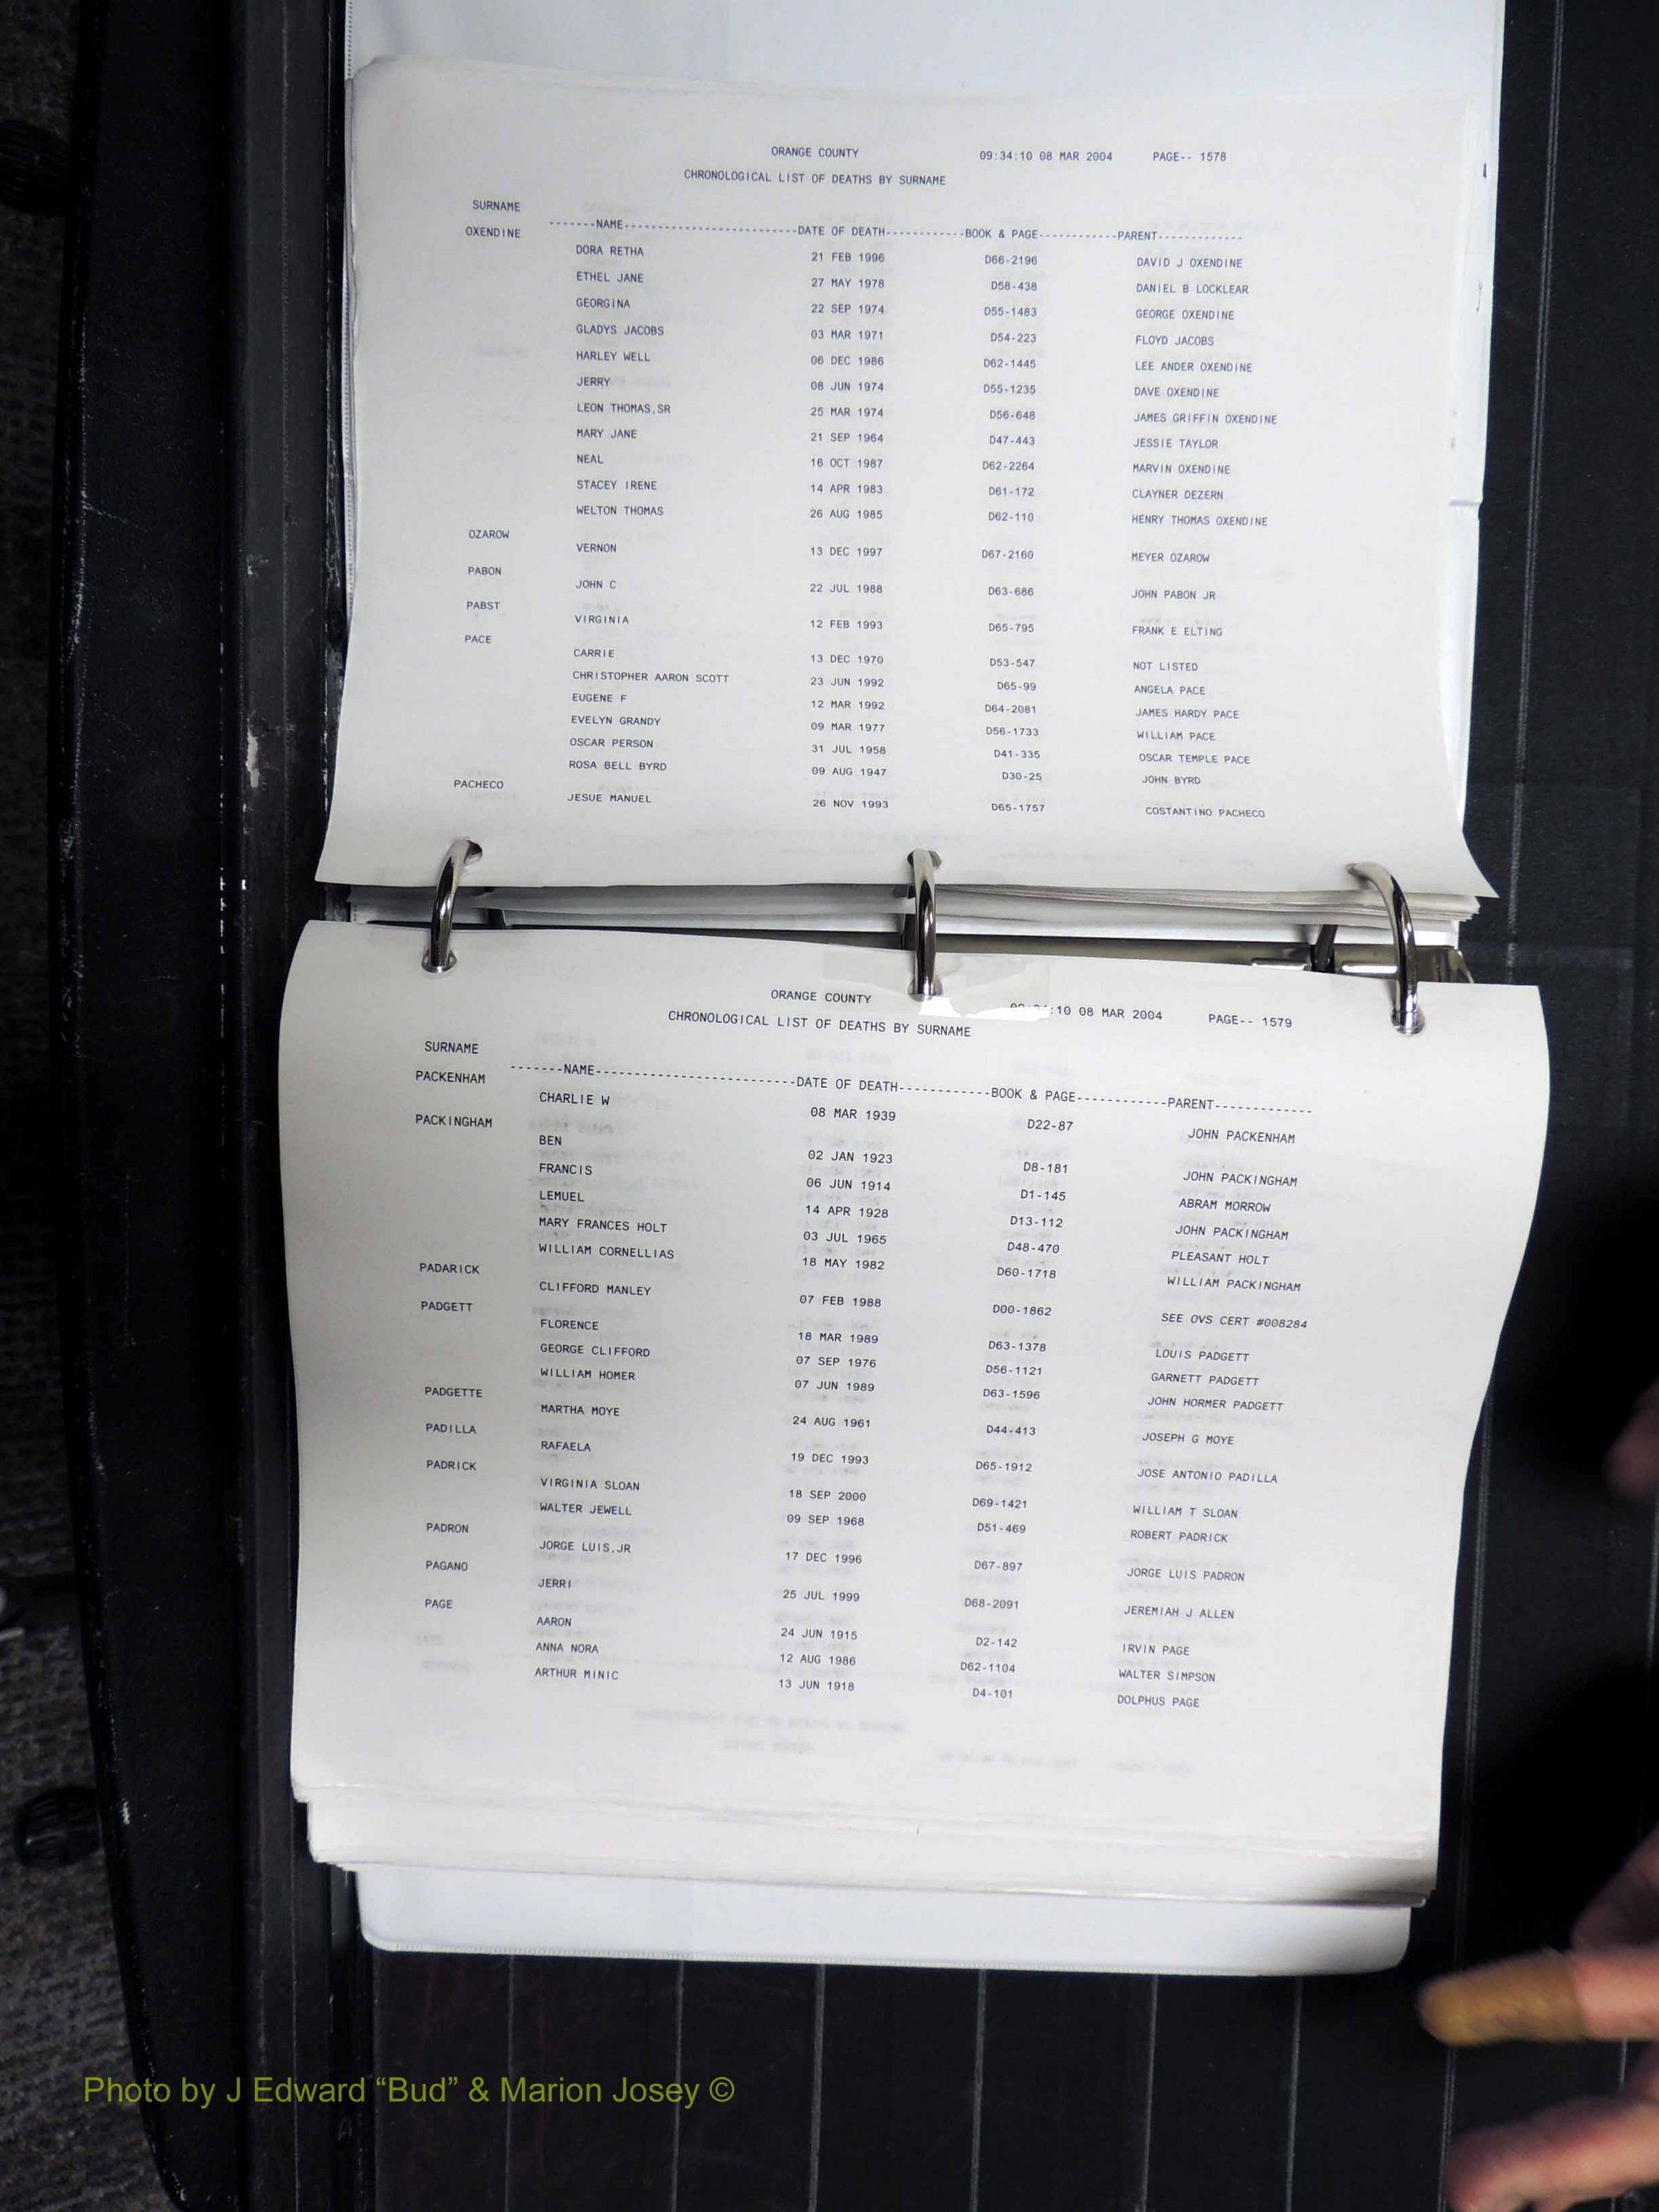 ORANGE COUNTY 09:34:10 08 MAR 2004 PAGE-- 1578
CHRONOLOGICAL LIST OF DEATHS BY SURNAME
SURNAME
-------NAME---------------------------DATE OF DEATH------------BOOK & PAGE------------PARENT-------------
OXENDINE
DORA RETHA 21 FEB 1996 D66-2196 DAVID J OXENDINE
ETHEL JANE 27 MAY 1978 D58-438 DANIEL B LOCKLEAR
GEORGINA 22 SEP 1974 D55-1483 GEORGE OXENDINE
GLADYS JACOBS 03 MAR 1971 D54-223 FLOYD JACOBS
HARLEY WELL 06 DEC 1986 D62-1445 LEE ANDER OXENDINE
JERRY 08 JUN 1974 D55-1235 DAVE OXENDINE
LEON THOMAS,SR 25 MAR 1974 D56-648 JAMES GRIFFIN OXENDINE
MARY JANE 21 SEP 1964 D47-443 JESSIE TAYLOR
NEAL 16 OCT 1987 D62-2264 MARVIN OXENDINE
STACEY IRENE 14 APR 1983 D61-172 CLAYNER DEZERN
WELTON THOMAS 26 AUG 1985 D62-110 HENRY THOMAS OXENDINE
OZAROW
VERNON 13 DEC 1997 D67-2160 MEYER OZAROW
PABON
JOHN C 22 JUL 1988 D63-686 JOHN PABON JR
PABST
VIRGINIA 12 FEB 1993 D65-795 FRANK E ELTING
PACE
CARRIE 13 DEC 1970 D53-547 NOT LISTED
CHRISTOPHER AARON SCOTT 23 JUN 1992 D65-99 ANGELA PACE
EUGENE F 12 MAR 1992 D64-2081 JAMES HARDY PACE
EVELYN GRANDY 09 MAR 1977 D56-1733 WILLIAM PACE
OSCAR PERSON 31 JUL 1958 D41-335 OSCAR TEMPLE PACE
ROSA BELL BYRD 09 AUG 1947 D30-25 JOHN BYRD
PACHECO
JESUE MANUEL 26 NOV 1993 D65-1757 COSTANTINO PACHECO
ORANGE COUNTY :10 08 MAR 2004 PAGE-- 1579
CHRONOLOGICAL LIST OF DEATHS BY SURNAME
SURNAME
-------NAME---------------------------DATE OF DEATH------------BOOK & PAGE------------PARENT-------------
PACKENHAM
CHARLIE W 08 MAR 1939 D22-87 JOHN PACKENHAM
PACKINGHAM
BEN 02 JAN 1923 D8-181 JOHN PACKINGHAM
FRANCIS 06 JUN 1914 D1-145 ABRAM MORROW
LEMUEL 14 APR 1928 D13-112 JOHN PACKINGHAM
MARY FRANCES HOLT 03 JUL 1965 D48-470 PLEASANT HOLT
WILLIAM CORNELLIAS 18 MAY 1982 D60-1718 WILLIAM PACKINGHAM
PADARICK
CLIFFORD MANLEY 07 FEB 1988 D00-1862 SEE OVS CERT #008284
PADGETT
FLORENCE 18 MAR 1989 D63-1378 LOUIS PADGETT
GEORGE CLIFFORD 07 SEP 1976 D56-1121 GARNETT PADGETT
WILLIAM HOMER 07 JUN 1989 D63-1596 JOHN HORMER PADGETT
PADGETTE
MARTHA MOYE 24 AUG 1961 D44-413 JOSEPH G MOYE
PADILLA
RAFAELA 19 DEC 1993 D65-1912 JOSE ANTONIO PADILLA
PADRICK
VIRGINIA SLOAN 18 SEP 2000 D69-1421 WILLIAM T SLOAN
WALTER JEWELL 09 SEP 1968 D51-469 ROBERT PADRICK
PADRON
JORGE LUIS,JR 17 DEC 1996 D67-897 JORGE LUIS PADRON
PAGANO
JERRI 25 JUL 1999 D68-2091 JEREMIAH J ALLEN
PAGE
AARON 24 JUN 1915 D2-142 IRVIN PAGE
ANNA NORA 12 AUG 1986 D62-1104 WALTER SIMPSON
ARTHUR MINIC 13 JUN 1918 D4-101 DOLPHUS PAGE
Photo by J Edward “Bud” & Marion Josey ©